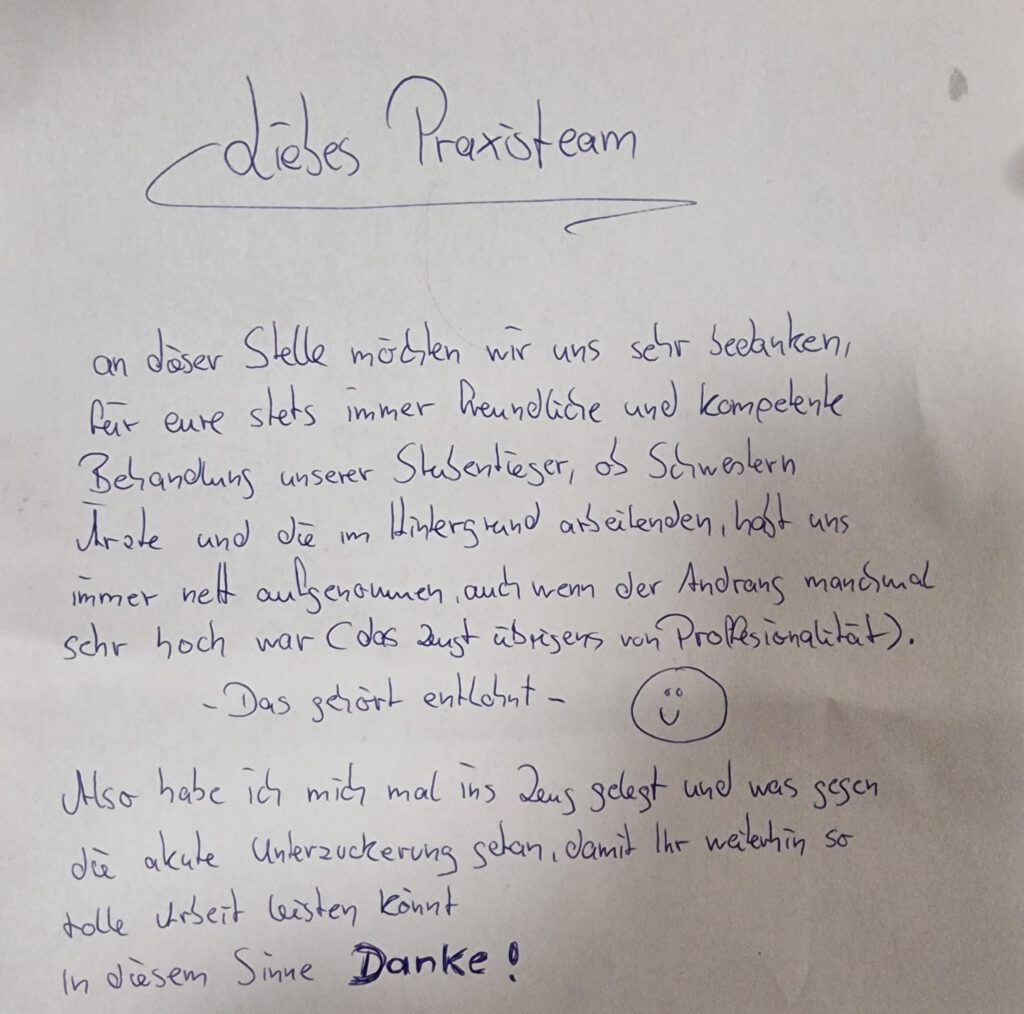 Liebes Praxisteam
an dieser Stelle möchten wir uns sehr bedanken,
für eure stets immer freundliche und kompetente
Behandlung unserer Stubentieger, ob Schwestern
Ärzte und die im Hintergrund arbeitenden, habt uns
immer nett aufgenommen, auch wenn der Andrang manchmal
sehr hoch war (das zeugt übrigens von Proffesionalität).
- Das gehört entlohnt -
Also habe ich mich mal ins Zeug gelegt und was gegen
die akute Unterzuckerung getan, damit Ihr weiterhin so
tolle Arbeit leisten könnt
In diesem Sinne Danke!